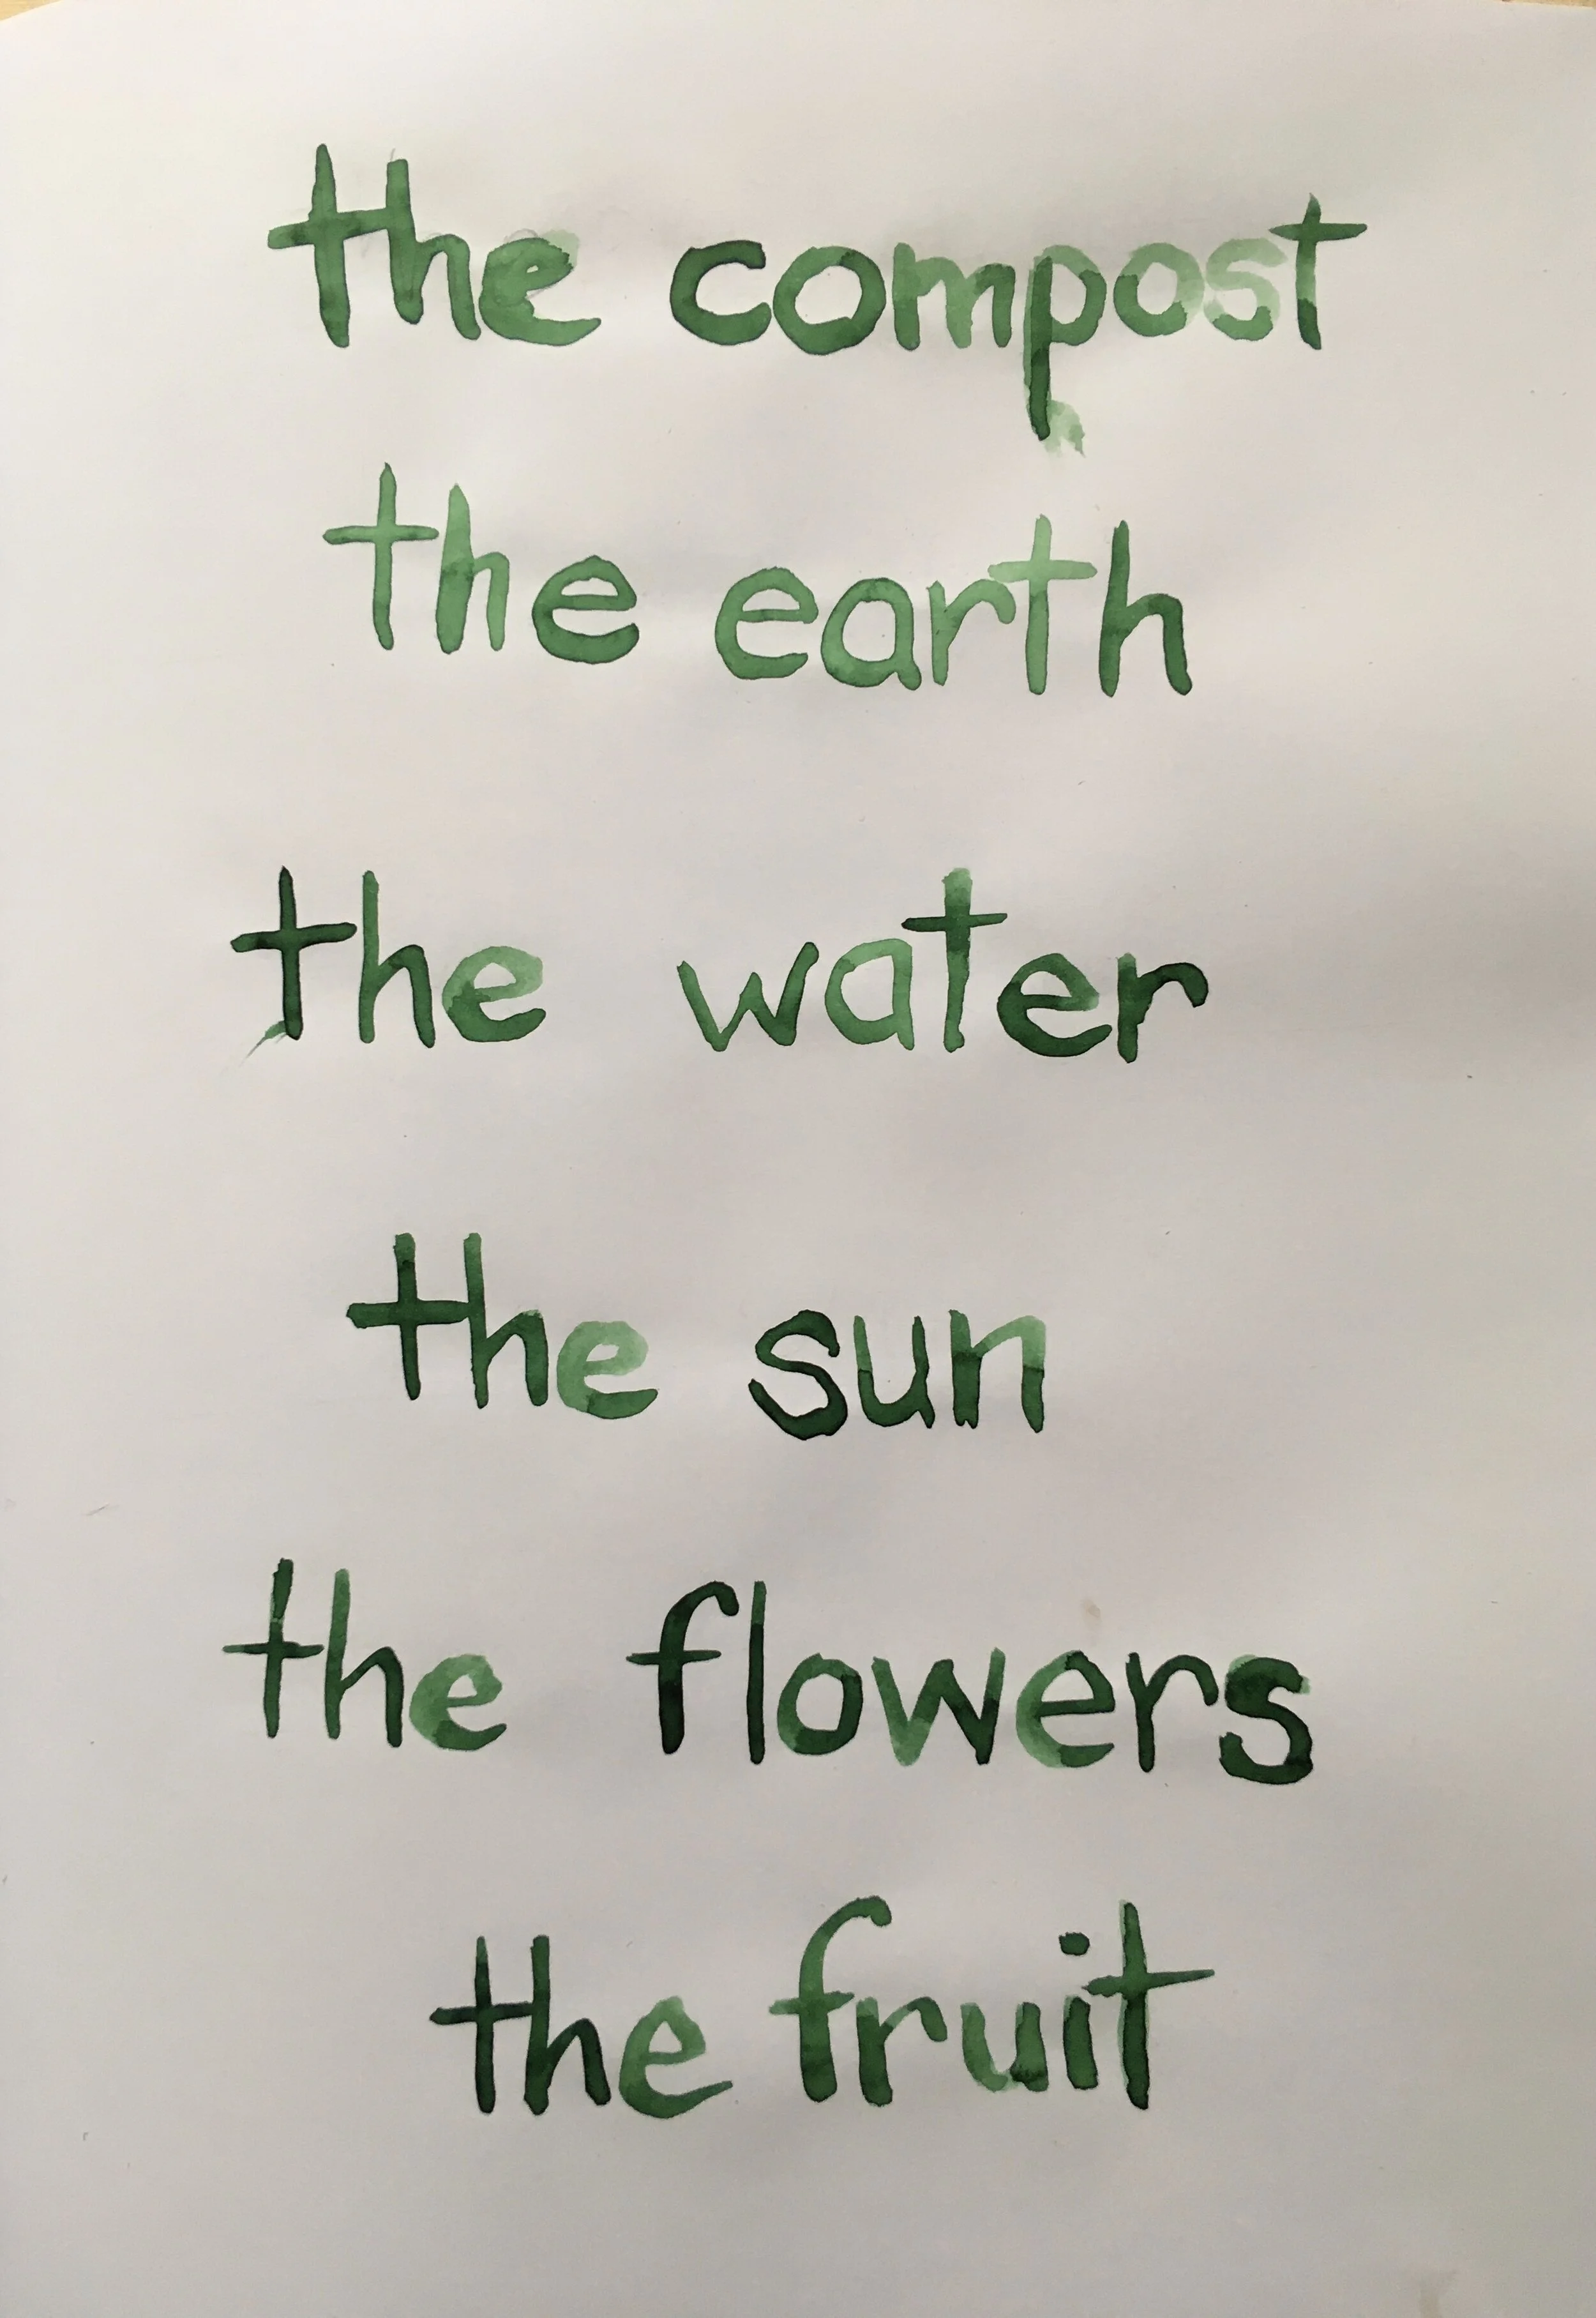 the compost
the earth
the water
the sun
the flowers
the fruit